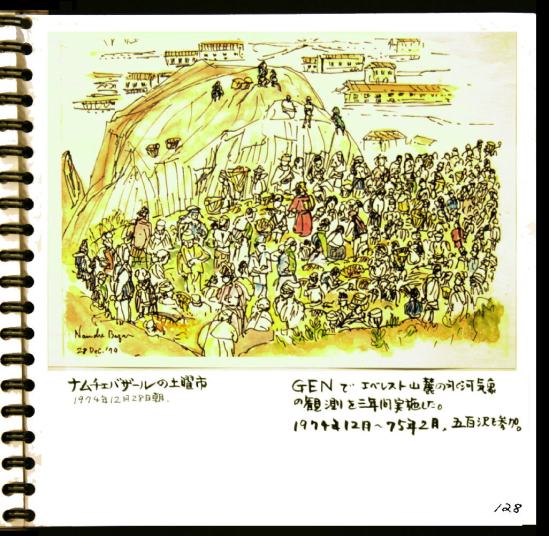 Namche Bazar
28 Dec. '74
ナムチェバザールの土曜市
1974年12月28日朝.
GENで エベレスト山麓の氷河気象
の観測を三年間実施した。
1974年12月～75年2月, 五百沢も参加。
128